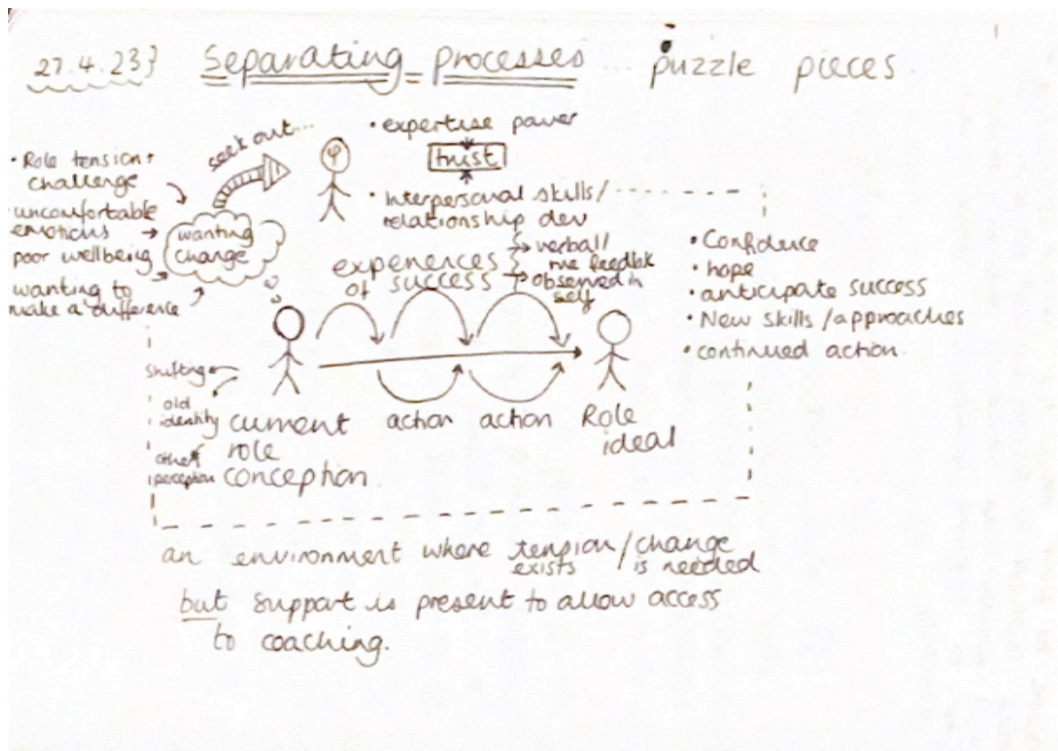 27.4.23} Separating Processes ... puzzle pieces
seek out...
• expertise power
trust
• Interpersonal skills/
relationship dev
• Role tension +
challenge
• uncomfortable
emotions
poor wellbeing
wanting to
make a difference
wanting
change
experiences
of success
verbal/
feedbk
observed in
self
• Confidence
• hope
• anticipate success
• New skills/approaches
• continued action.
Shifting
old
identity
other
perception
current
role
conception
action action
Role
ideal
an environment where tension/change
exists is needed
but support is present to allow access
to coaching.